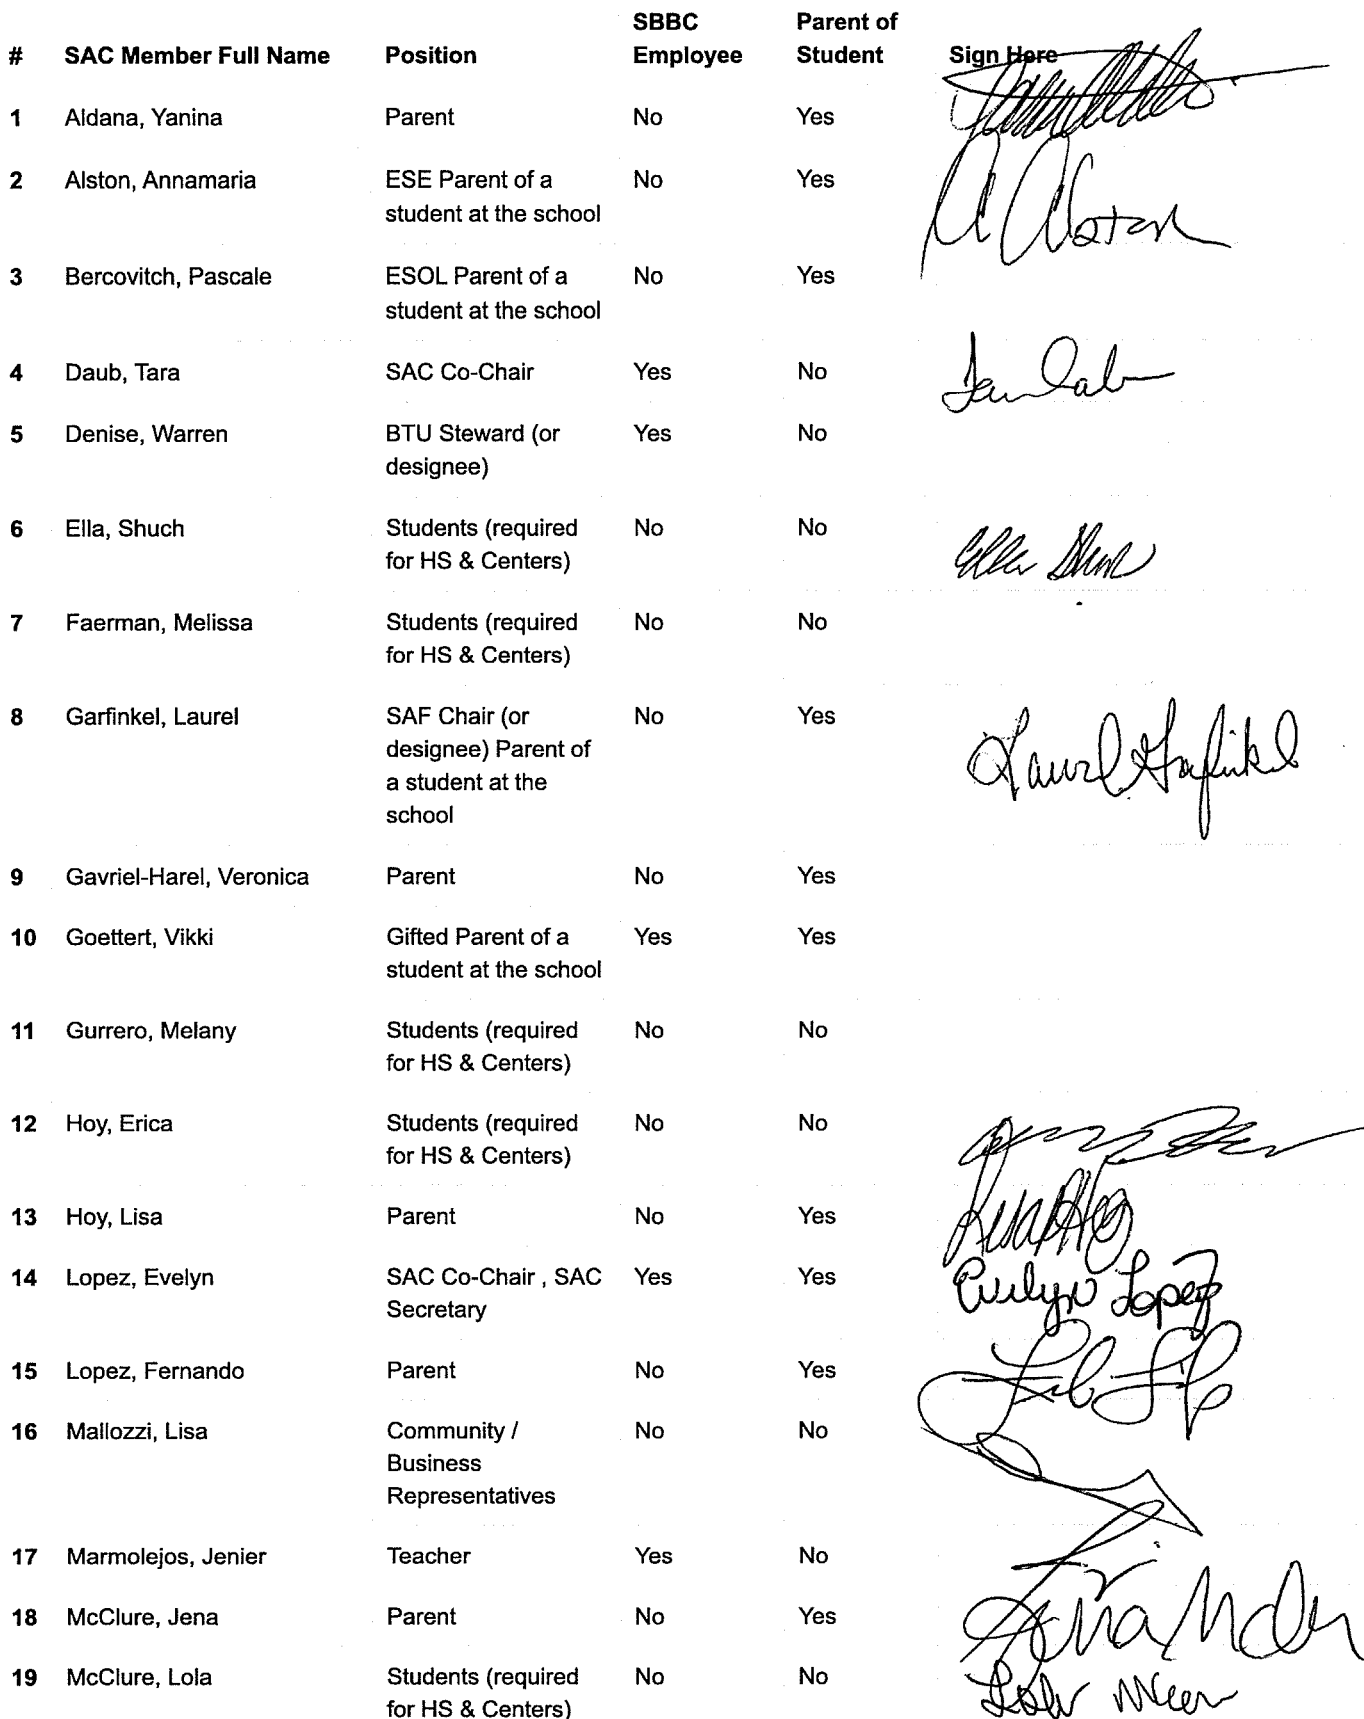 # SAC Member Full Name Position SBBC Employee Parent of Student Sign Here
1 Aldana, Yanina Parent No Yes
2 Alston, Annamaria ESE Parent of a No Yes
student at the school
A Alston
3 Bercovitch, Pascale ESOL Parent of a No Yes
student at the school
4 Daub, Tara SAC Co-Chair Yes No
5 Denise, Warren BTU Steward (or Yes No
designee)
6 Ella, Shuch Students (required No No
for HS & Centers)
7 Faerman, Melissa Students (required No No
for HS & Centers)
8 Garfinkel, Laurel SAF Chair (or No Yes
designee) Parent of
a student at the
school
Laurel Garfinkel
9 Gavriel-Harel, Veronica Parent No Yes
10 Goettert, Vikki Gifted Parent of a Yes Yes
student at the school
11 Gurrero, Melany Students (required No No
for HS & Centers)
12 Hoy, Erica Students (required No No
for HS & Centers)
13 Hoy, Lisa Parent No Yes Lisa Hoy
14 Lopez, Evelyn SAC Co-Chair , SAC Yes Yes Evelyn Lopez
Secretary
15 Lopez, Fernando Parent No Yes
16 Mallozzi, Lisa Community / No No
Business
Representatives
17 Marmolejos, Jenier Teacher Yes No
18 McClure, Jena Parent No Yes
19 McClure, Lola Students (required No No
for HS & Centers)